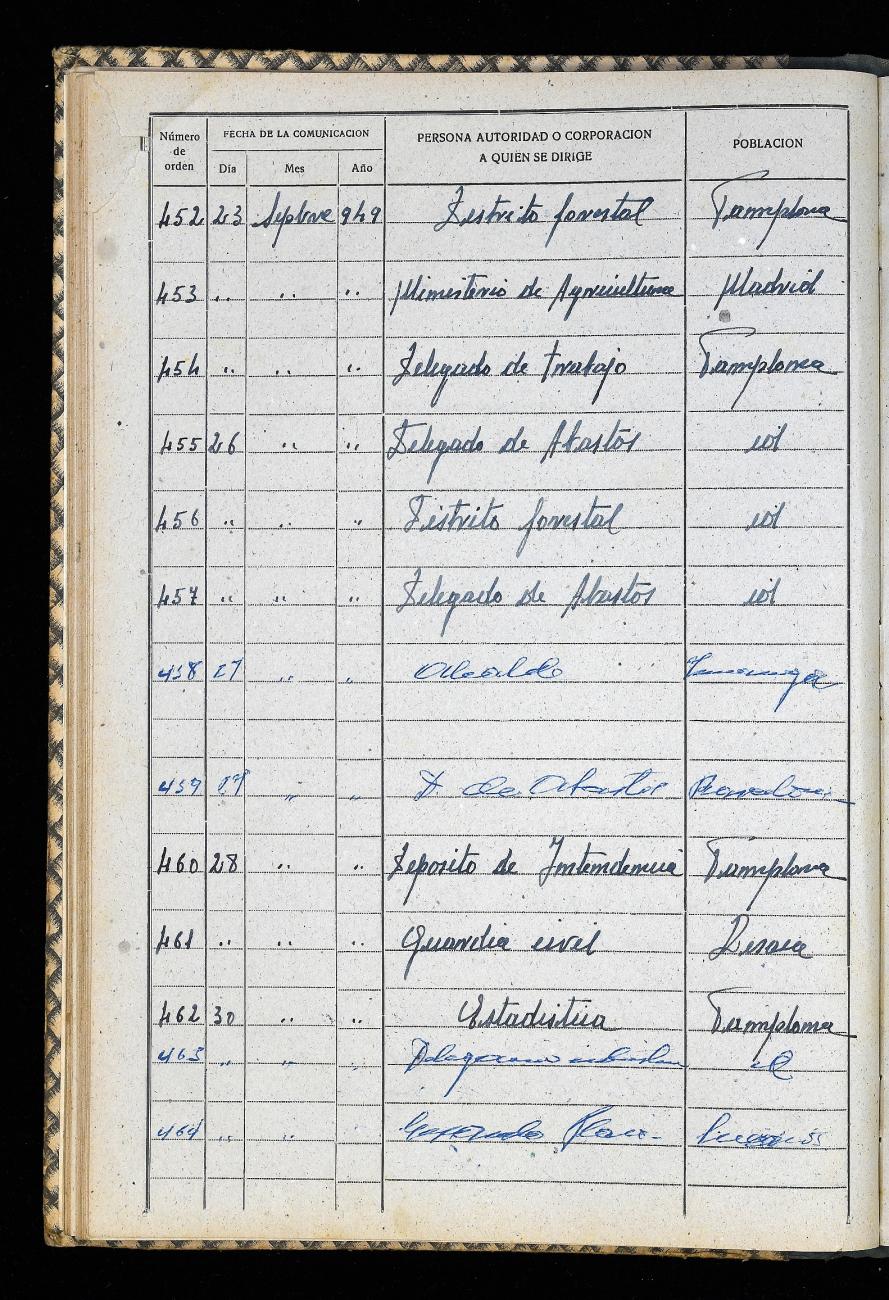 Número de orden
FECHA DE LA COMUNICACION
Día Mes Año
PERSONA AUTORIDAD O CORPORACION
A QUIEN SE DIRIGE
POBLACION
452 23 Sepbre 949 Distrito forestal Pamplona
453 .. .. .. Ministerio de Agricultura Madrid
454 .. .. .. Delegado de trabajo Pamplona
455 26 .. .. Delegado de Abastos id
456 .. .. .. Distrito forestal id
457 .. .. .. Delegado de Abastos id
458 27 .. .. Alcalde
459 27 .. .. D. de Abastos
460 28 .. .. Deposito de Intendencia Pamplona
461 .. .. .. Guardia civil
462 30 .. .. Estadistica Pamplona
463 .. .. .. id
464 .. ..